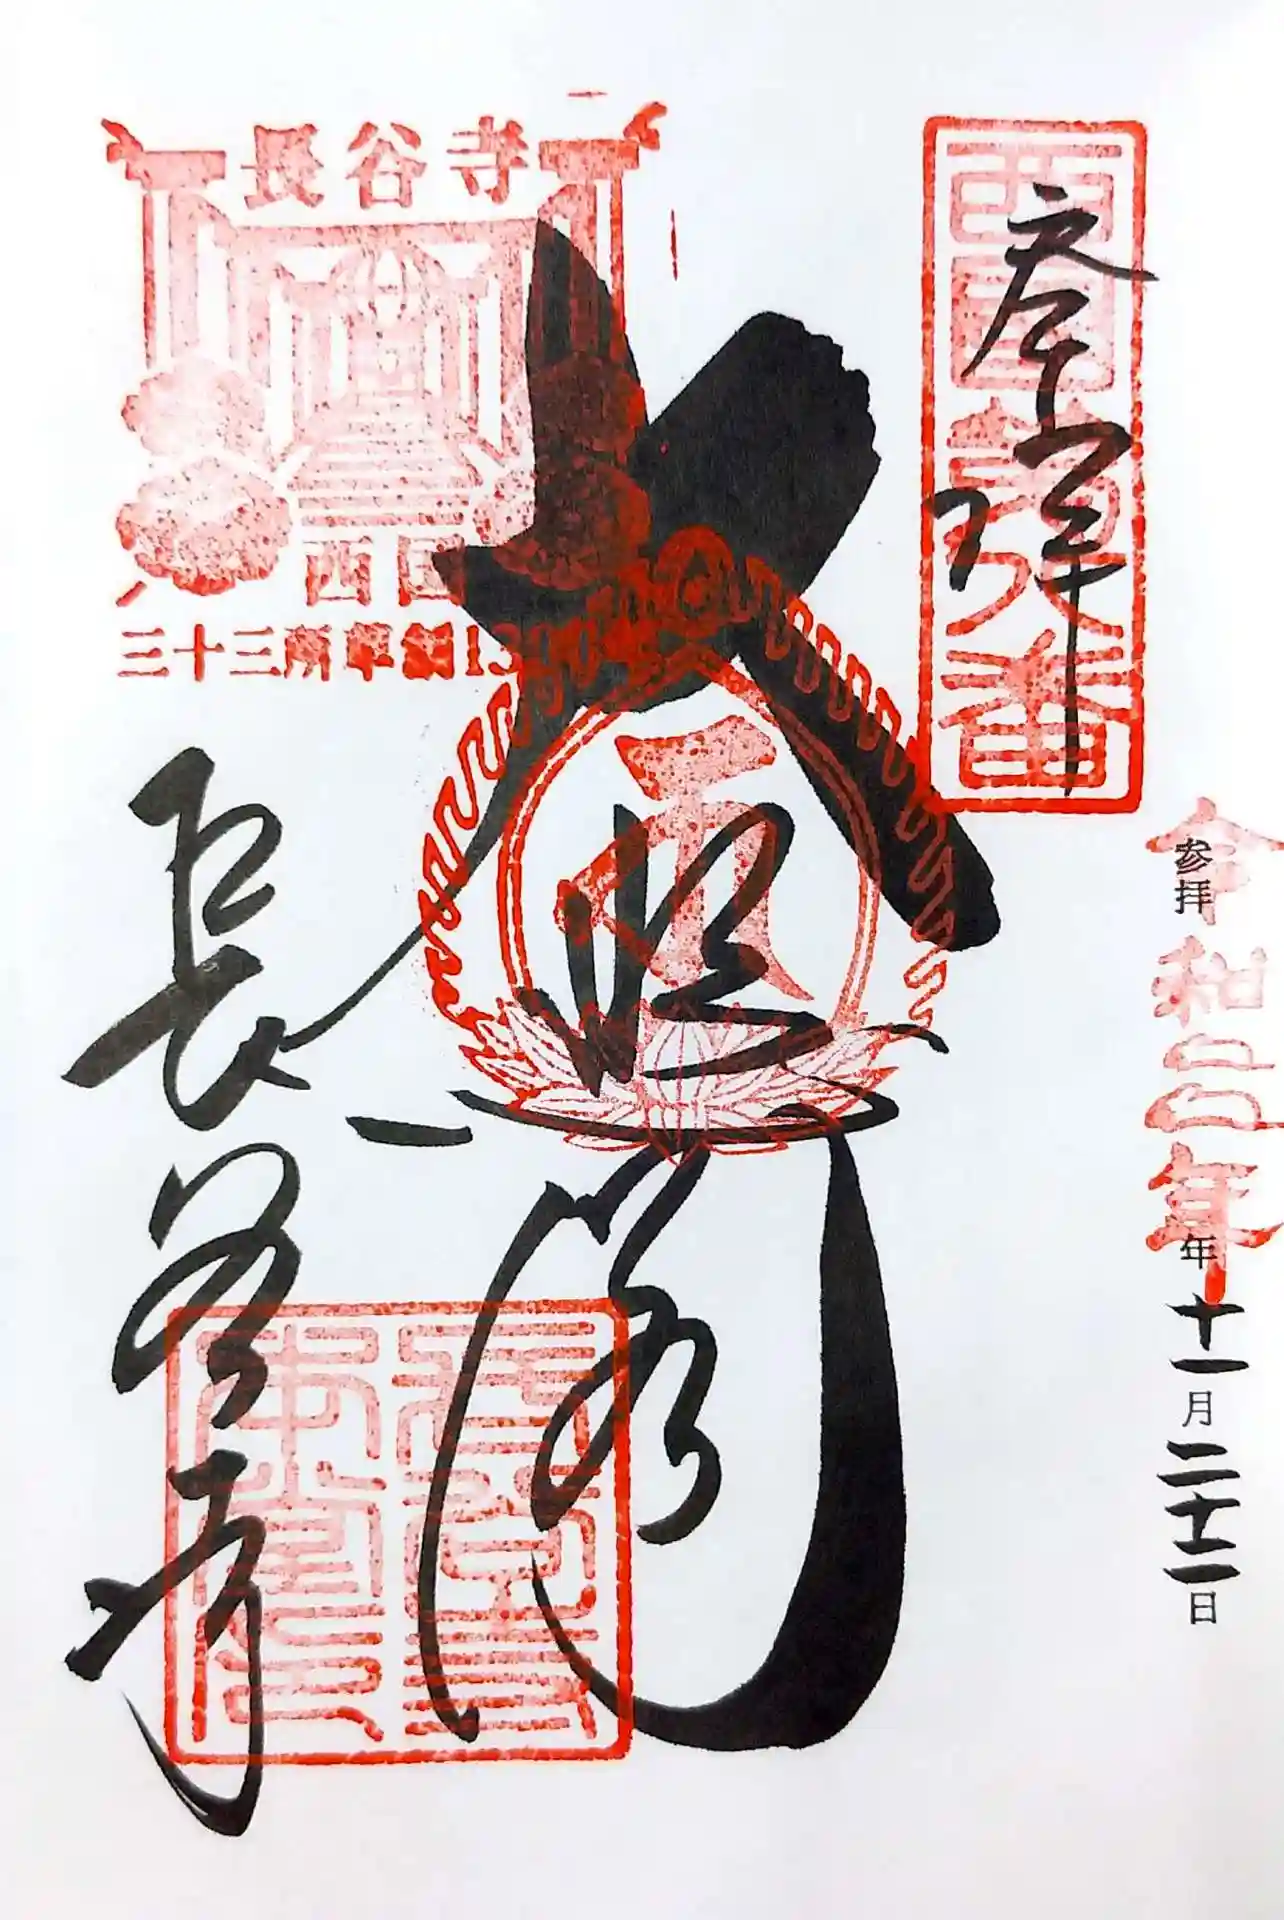 西国第八番
奉拝
参拝
令和二年
年十一月二十二日
大悲閣
長谷寺
長谷寺
西国
三十三所草創1300年